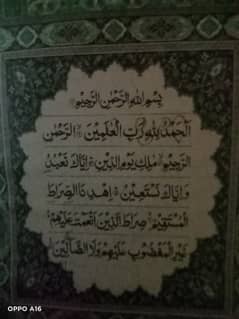 بِسْمِ اللهِ الرَّحْمٰنِ الرَّحِيْمِ
اَلْحَمْدُ لِلّٰهِ رَبِّ الْعٰلَمِيْنَ ۙ الرَّحْمٰنِ
الرَّحِيْمِ ۙ مٰلِكِ يَوْمِ الدِّيْنِ ؕ اِيَّاكَ نَعْبُدُ
وَاِيَّاكَ نَسْتَعِيْنُ ؕ اِهْدِنَا الصِّرَاطَ
الْمُسْتَقِيْمَ ۙ صِرَاطَ الَّذِيْنَ اَنْعَمْتَ عَلَيْهِمْ ۙ
غَيْرِ الْمَغْضُوْبِ عَلَيْهِمْ وَلَا الضَّآلِّيْنَ
OPPO A16